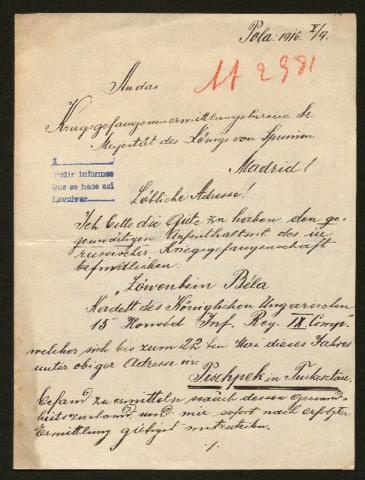 Pola: 1916 I/9.
11 2981
An das
Kriegsgefangenenermittlungsbureau Sr.
Majestät des Königs von Spanien
Madrid!
1
Pedir informes
Que se hace así
Devolver
Löbliche Adresse!
Ich bitte die Güte zu haben den ge-
genwärtigen Aufenthaltsort des in
russischer Kriegsgefangenschaft
befindlichen
Löwenbein Béla
Kadett des Königlichen Ungarischen
15 Honvéd Inf. Reg. IX Comp.
welcher sich bis zum 22 ten Mai dieses Jahres
unter obiger Adresse in
Pischpek in Turkestan
zu ermitteln sowie dessen Gesund-
heitszustand und mir sofort nach erfolgter
Ermittlung gütigst mitzuteilen.